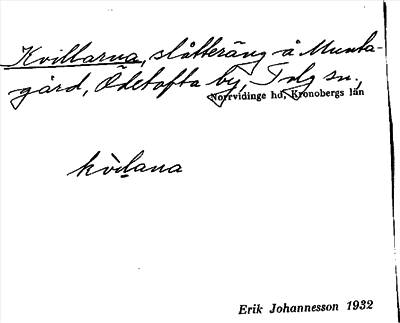 Kvillarna, slåtteräng å Munka-
gård, Ödetofta by, Tolg sn.,
Norrvidinge hd, Kronobergs län
kv̀ilana
Erik Johannesson 1932